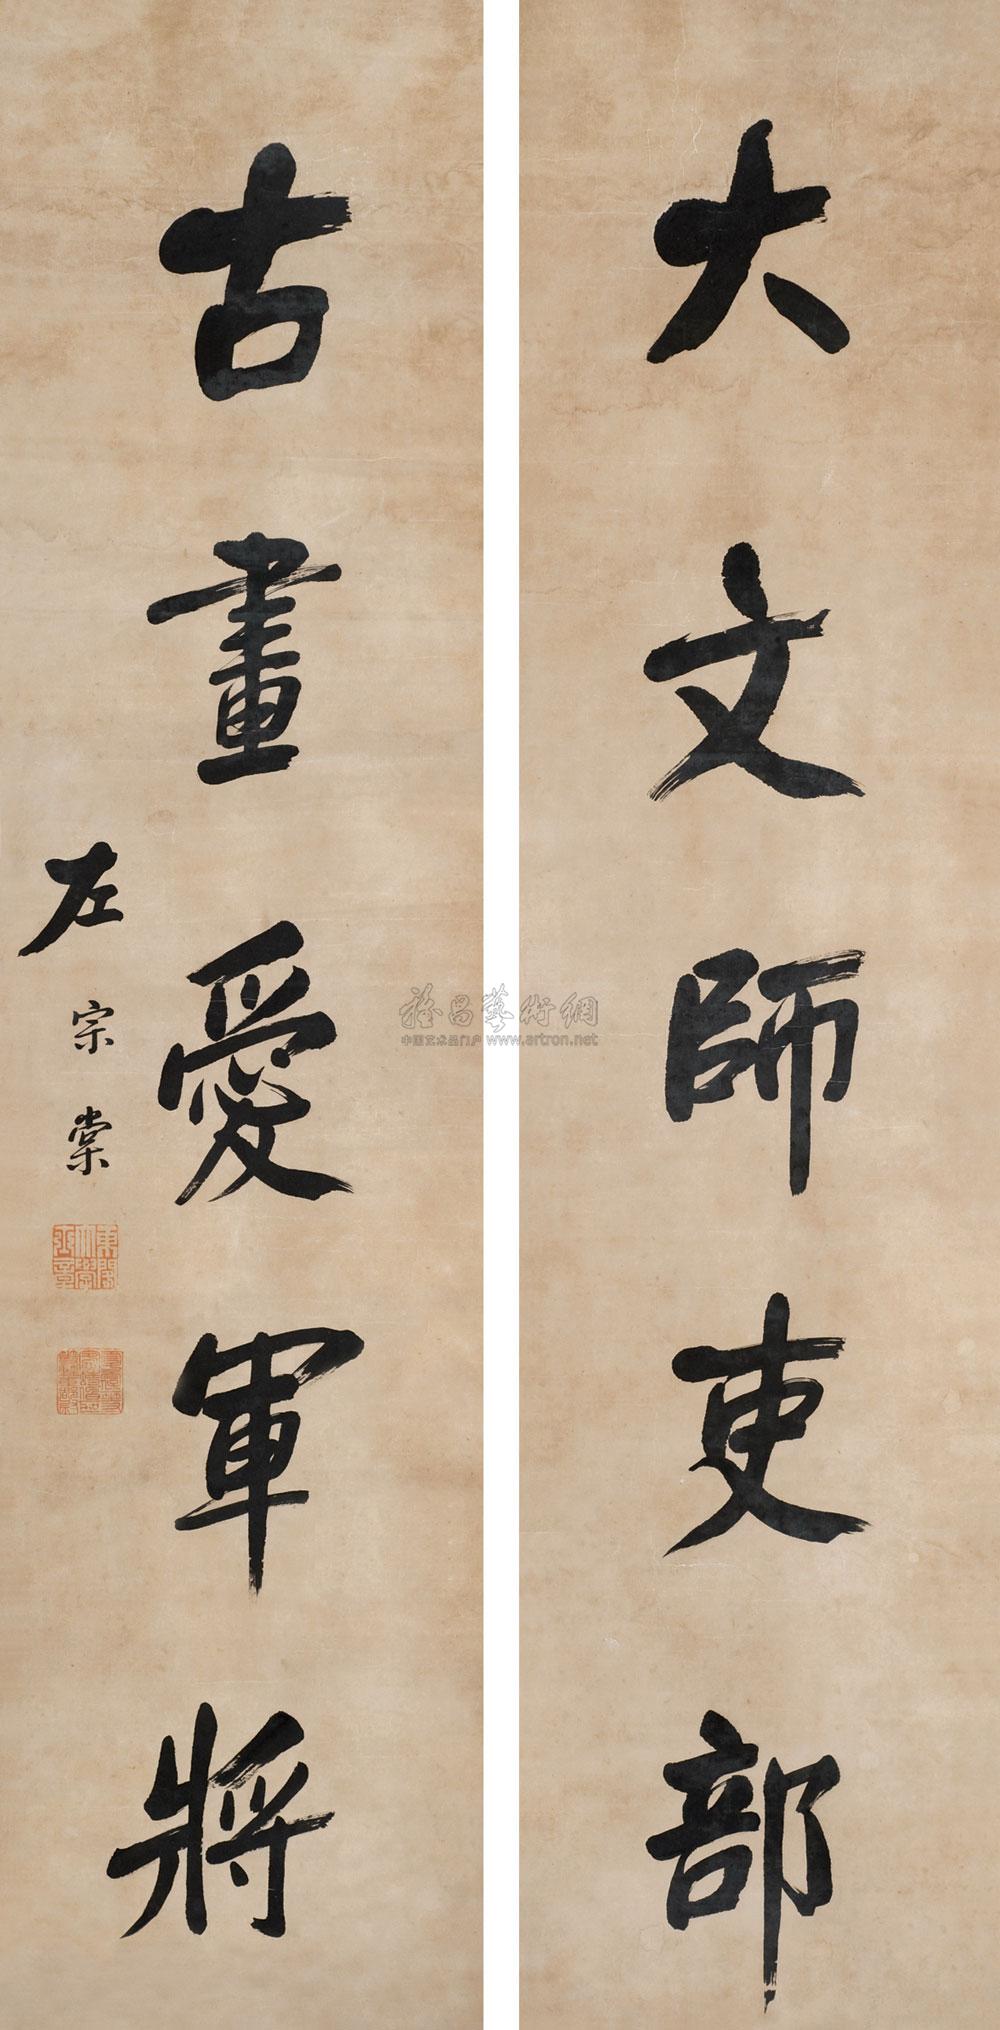 大文師吏部
古畫愛軍將
左宗棠
東閣大學士章
雅昌藝術網
中国艺术品门户 www.artron.net